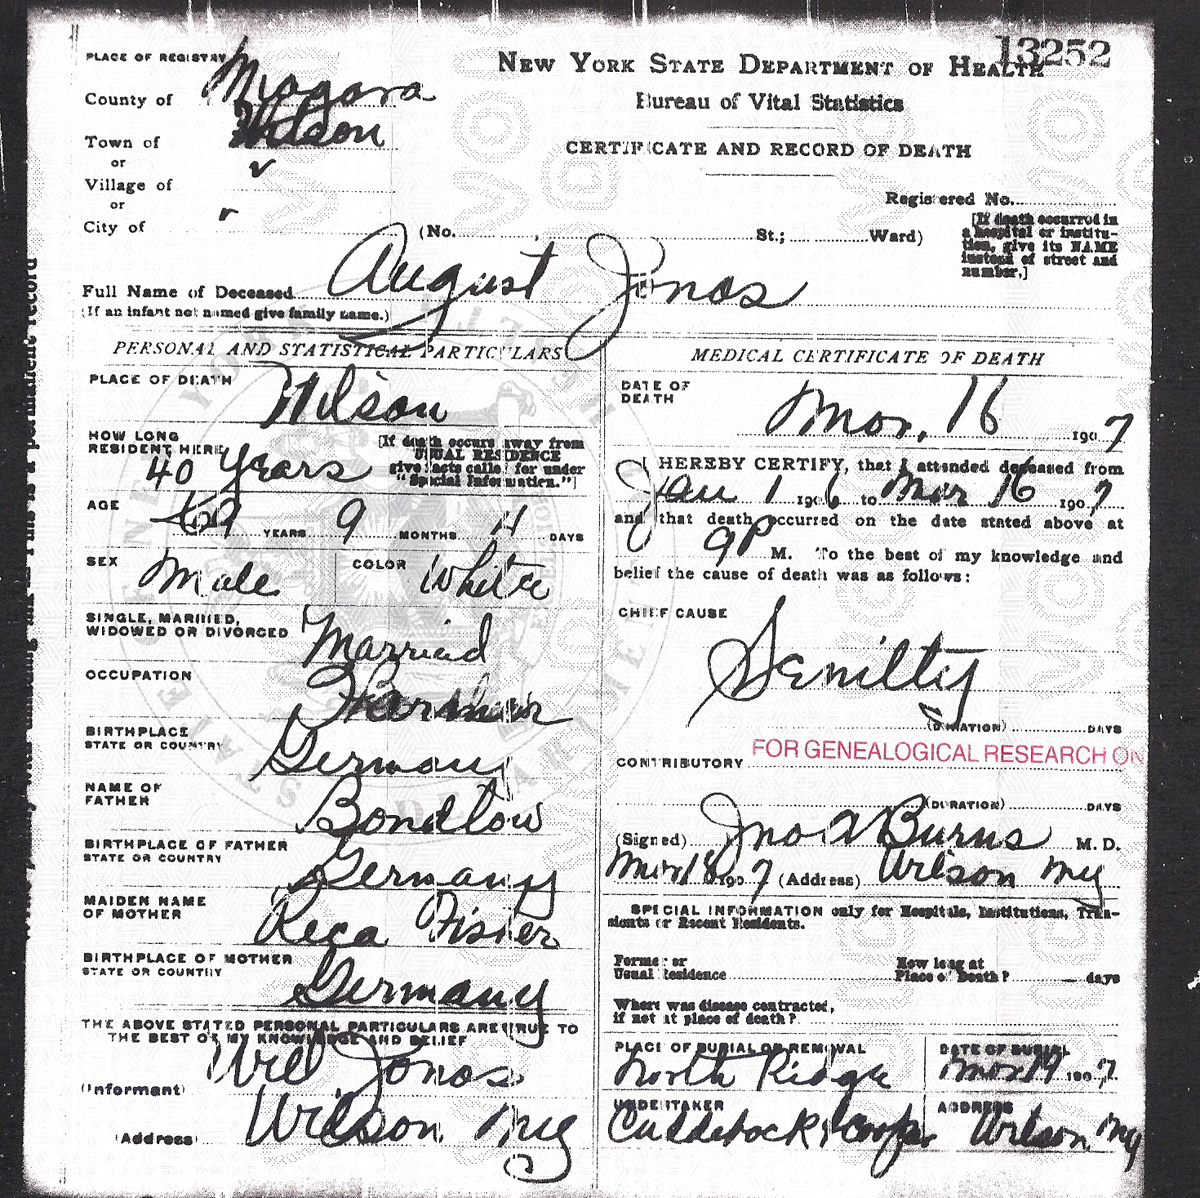 13252
PLACE OF REGISTRY
NEW YORK STATE DEPARTMENT OF HEALTH
County of Niagara
Bureau of Vital Statistics
Town of Wilson
CERTIFICATE AND RECORD OF DEATH
or
Village of
or
Registered No.
City of
(No. , St.; Ward)
[If death occurred in
a hospital or institu-
tion, give its NAME
instead of street and
number.]
Full Name of Deceased August Jonas
(If an infant not named give family name.)
PERSONAL AND STATISTICAL PARTICULARS
PLACE OF DEATH Wilson
HOW LONG
RESIDENT HERE 40 Years
[If death occurs away from
USUAL RESIDENCE
give facts called for under
"Special Information."]
AGE 69 YEARS 9 MONTHS 11 DAYS
SEX Male COLOR White
SINGLE, MARRIED,
WIDOWED OR DIVORCED Married
OCCUPATION Farmer
BIRTHPLACE
STATE OR COUNTRY Germany
NAME OF
FATHER Bondlow
BIRTHPLACE OF FATHER
STATE OR COUNTRY Germany
MAIDEN NAME
OF MOTHER Reca Fisher
BIRTHPLACE OF MOTHER
STATE OR COUNTRY Germany
THE ABOVE STATED PERSONAL PARTICULARS ARE TRUE TO
THE BEST OF MY KNOWLEDGE AND BELIEF
(Informant) Will Jonas
(Address) Wilson NY
MEDICAL CERTIFICATE OF DEATH
DATE OF
DEATH Mar. 16 1907
I HEREBY CERTIFY, that I attended deceased from
Jan 1 1906 to Mar 16 1907
and that death occurred on the date stated above at
9P M. To the best of my knowledge and
belief the cause of death was as follows:
CHIEF CAUSE
Senilty
(DURATION) DAYS
FOR GENEALOGICAL RESEARCH ON
CONTRIBUTORY
(DURATION) DAYS
(Signed) Jno A Burns M. D.
Mar 18 1907 (Address) Wilson NY
SPECIAL INFORMATION only for Hospitals, Institutions, Tran-
sients or Recent Residents.
Former or
Usual Residence
How long at
Place of Death? days
Where was disease contracted,
if not at place of death?
PLACE OF BURIAL OR REMOVAL
North Ridge
DATE OF BURIAL
Mar 19 1907
UNDERTAKER
Cuddeback & Cooper
ADDRESS
Wilson NY